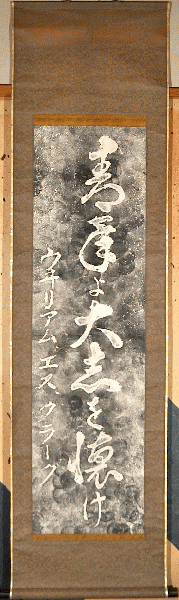 青年よ大志を懐け
ウヰリアム エス クラーク